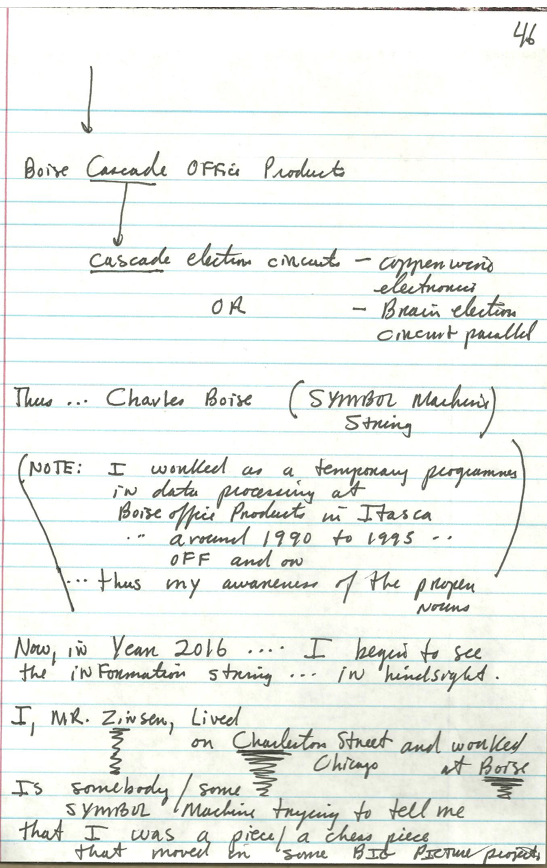 46
Boise Cascade Office Products
cascade election circuits - copper wire
electronics
OR - Brain election
circuit parallel
Thus ... Charles Boise (SYMBOL Machine)
String
(NOTE: I worked as a temporary programmer
in data processing at
Boise office Products in Itasca
.. around 1990 to 1995 ..
OFF and on
... thus my awareness of the proper
nouns
Now, in Year 2016 .... I begin to see
the inFormation string ... in hindsight.
I, MR. Zinsen, Lived
on Charleston Street and worked
Chicago at Boise
Is somebody / some
SYMBOL Machine trying to tell me
that I was a piece / a chess piece
that moved in some BIG PICTURE